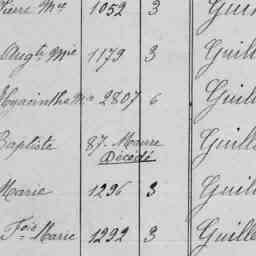 Pierre Mie 1052 3 Guil
Augte Mie 1179 3 Guill
Hyacinthe Mie 2807 6 Guil
Baptiste 87. Maure Guill
Décédé
Marie 1296 3 Guil
Fois Marie 1292 3 Guille